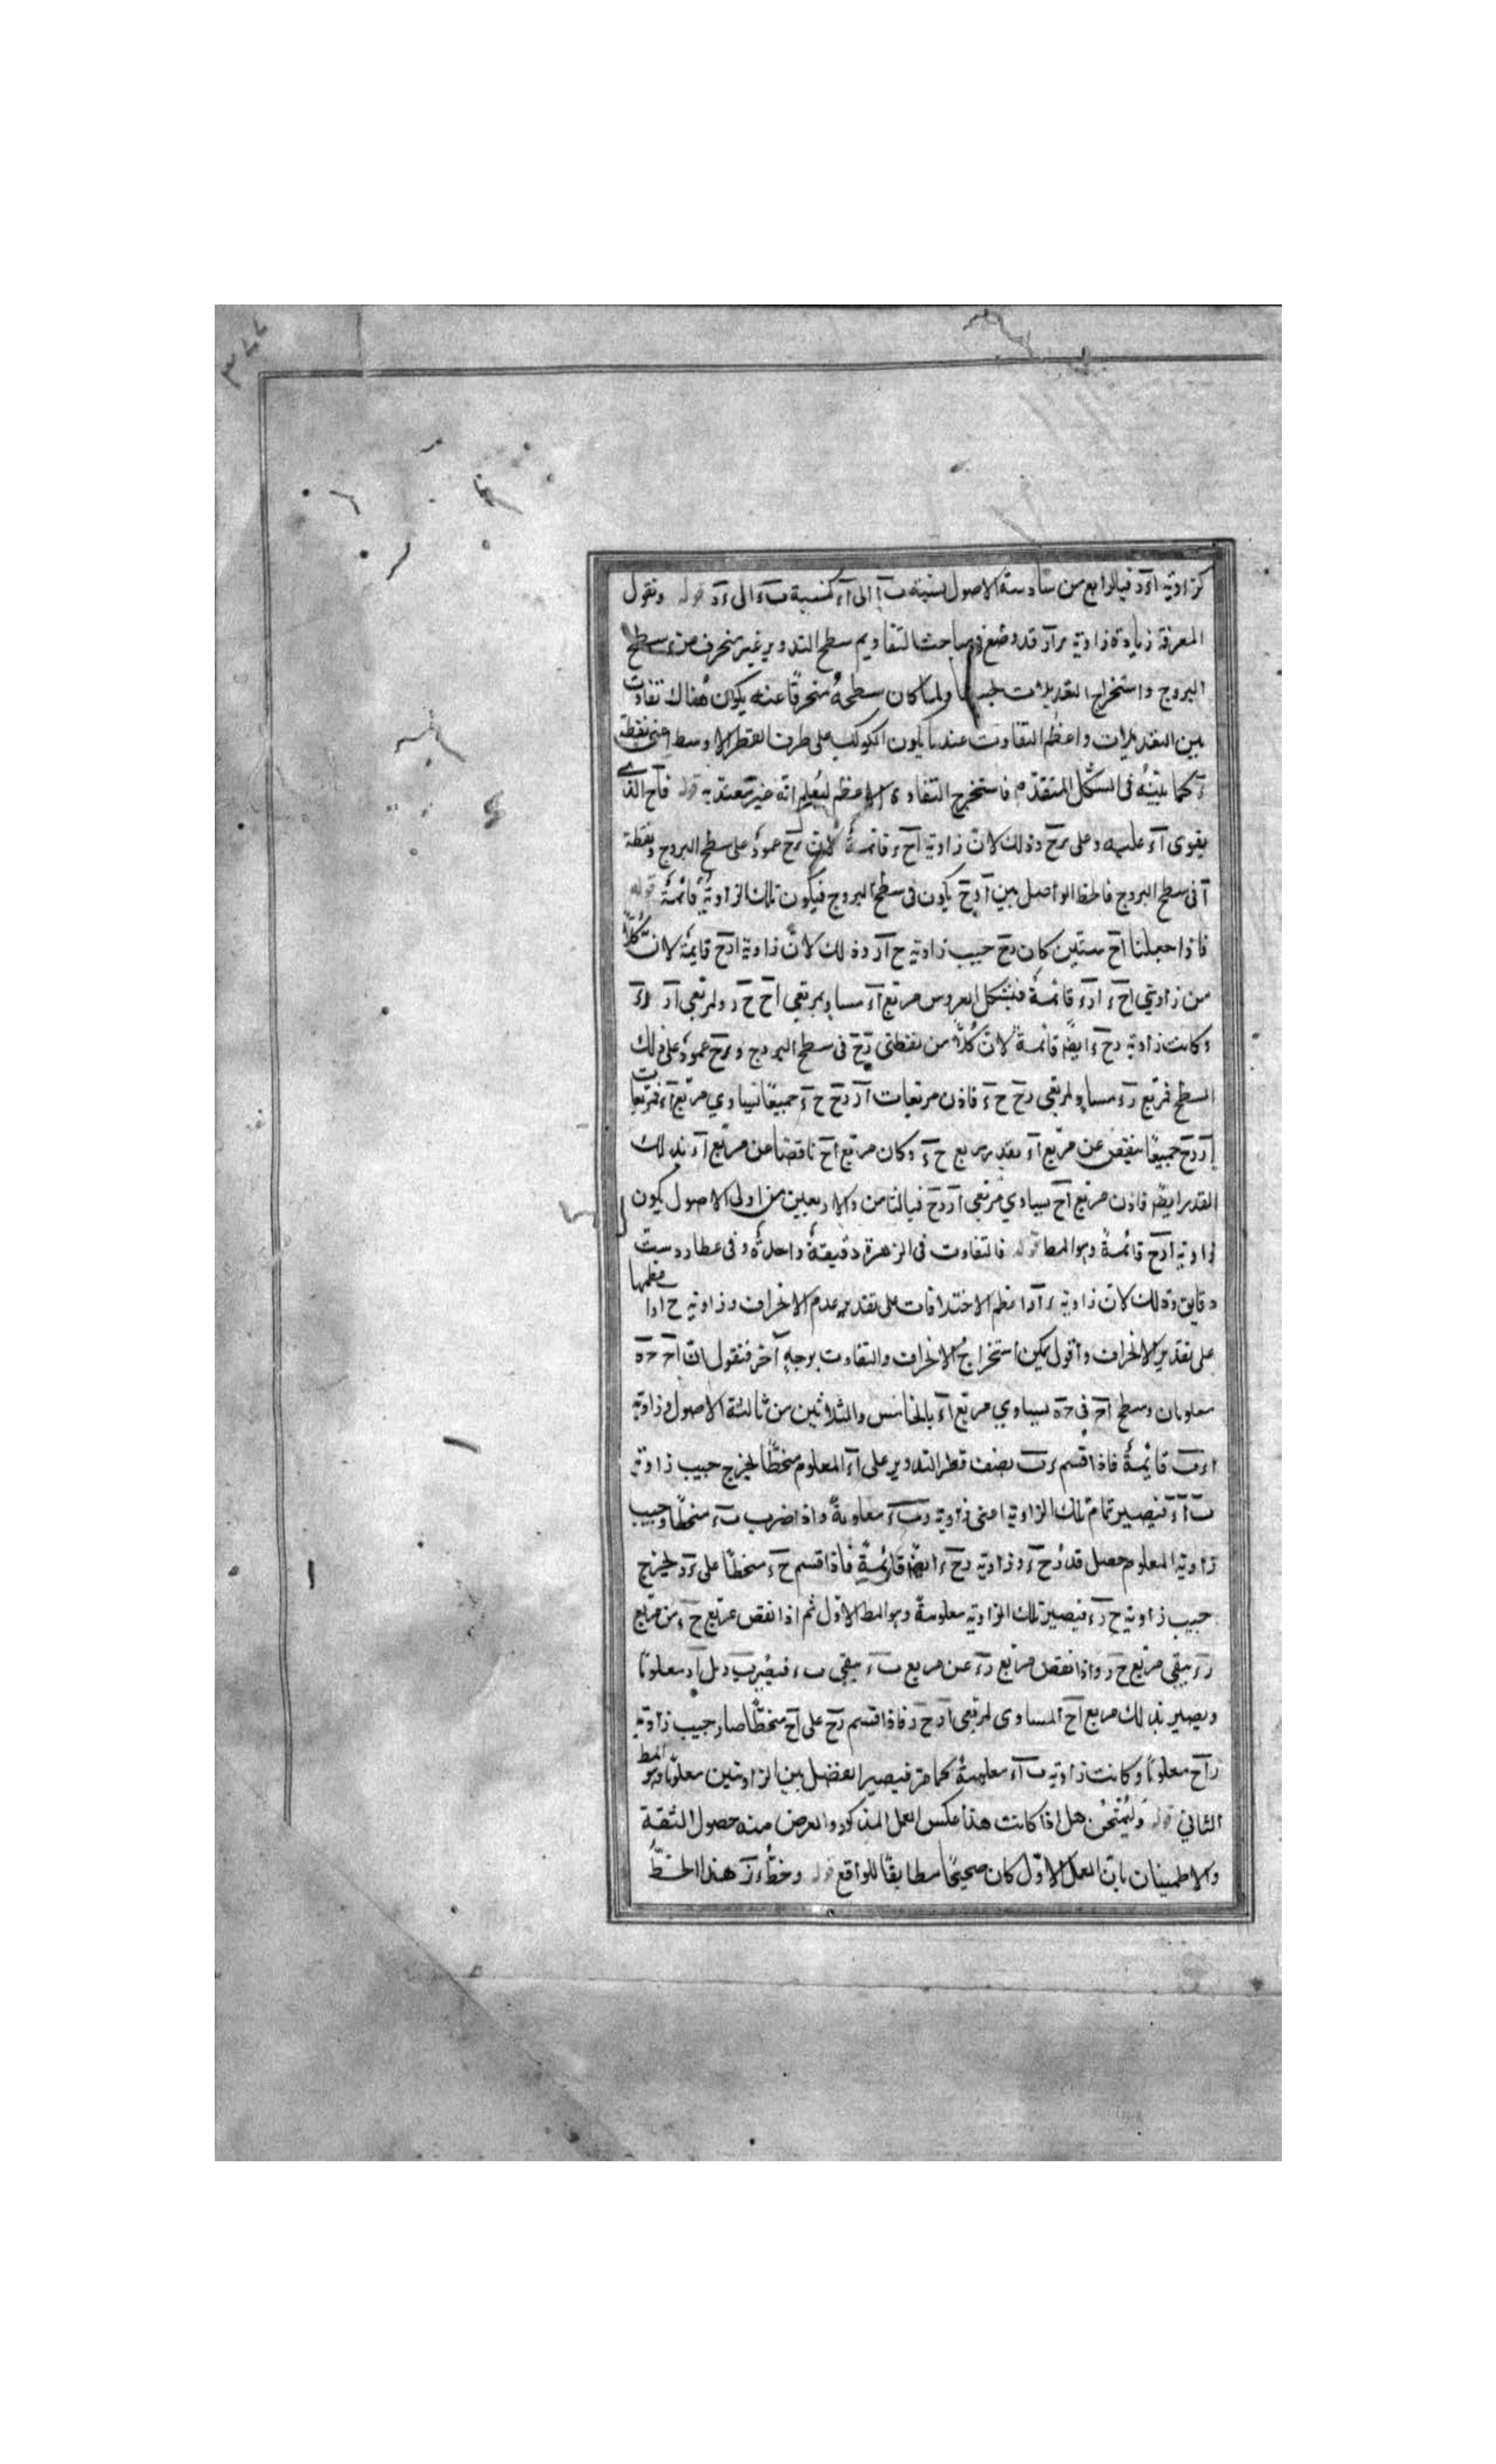 كزاوية اءد فبالرابع من سادسة الاصول نسبة ب ا الى اء كنسبة ب ء الى ء د قوله ونقول
المعرفة زيادة زاوية قد وضع في مباحث التقاويم سطح التدوير غير منحرف من سطح
البروج واستخراج التعديلات ولما كان سطحه منحرفا عنه يكون هناك تفاوت
بين التعديلات واعظم التفاوت عند ما يكون الكوكب على طرف القطر الاوسط اعنى نقطة
ء كما بينه فى الشكل المتقدم فاستخرج التفاوت الاعظم ليعلم انه غير معتد به قوله فاح الذى
يقوى اء عليه وعلى ءح وذلك لان زاوية اح ء قائمة لان ءح عمود على سطح البروج ونقطة
آ فى سطح البروج فالخط الواصل بين آ و ح يكون فى سطح البروج فيكون تلك الزاوية قائمة قوله
فاذا جعلنا اح ستين كان رح جيب زاوية ح ا ر وذلك لان زاوية ارح قايمة لان كلا
من زاويتي اح ء ارء قائمة فبشكل العروس مربع اء مساو لمربعي اح ح ء ولمربعي ار رء
وكانت زاوية رح ء ايضا قائمة لان كلا من نقطتى ر ح فى سطح البروج و ءح عمود على ذلك
السطح فمربع رء مساو لمربعى رح ح ء فاذن مربعات ار رح ح ء جميعا يساوي مربع اء فمربعا
ار رح جميعا ينقص عن مربع اء بقدر مربع ح ء وكان مربع اح ناقصا عن مربع اء بذلك
القدر ايضا فاذن مربع اح يساوي مربعى ار رح فبالثامن والاربعين من اولى الاصول يكون
زاوية ارح قائمة وهو المط قوله فالتفاوت فى الزهرة دقيقة واحدة وفى عطارد ست
دقايق وذلك لان زاوية ء ا ر اعظم الاختلافات على تقدير عدم الانحراف وزاوية ح ا ر اعظمها
على تقدير الانحراف واقول يمكن استخراج الانحراف والتفاوت بوجه آخر فنقول ان اح ح ه
معلومان وسطح اح فى ح ه يساوي مربع اء بالخامس والثلاثين من ثالثة الاصول وزاوية
اءب قايمة فاذا قسم ءب نصف قطر التدوير على اء المعلوم منحطا يخرج جيب زاوية
ب ا ء فيصير تمام تلك الزاوية اعنى زاوية رب ء معلومة واذا ضرب ب ء منحطا وجيب
زاوية المعلوم حصل قدر ح ء وزاوية رح ء ايضا قائمة فاذا قسم ح ء منحطا على ءر يخرج
جيب زاوية ح رء فيصير تلك الزاوية معلومة وهو المط الاول ثم اذا نقص مربع ح ء من مربع
رء يبقى مربع ح ر واذا نقص مربع رء عن مربع ب ء يبقى
ويصير بذلك مربع اح المساوى لمربعى ار ح ر فاذا قسم رح على اح منحطا صار جيب زاوية
راح معلوما وكانت زاوية ب اء معلومة كما مر فيصير الفضل بين الزاويتين معلوما وهو المط
الثاني قوله وليمتحن هل اذا كانت هذا عكس العمل المذكور والغرض منه حصول الثقة
والاطمينان بان العمل الاول كان صحيحا مطابقا للواقع قوله وخط ءر هذا الخط